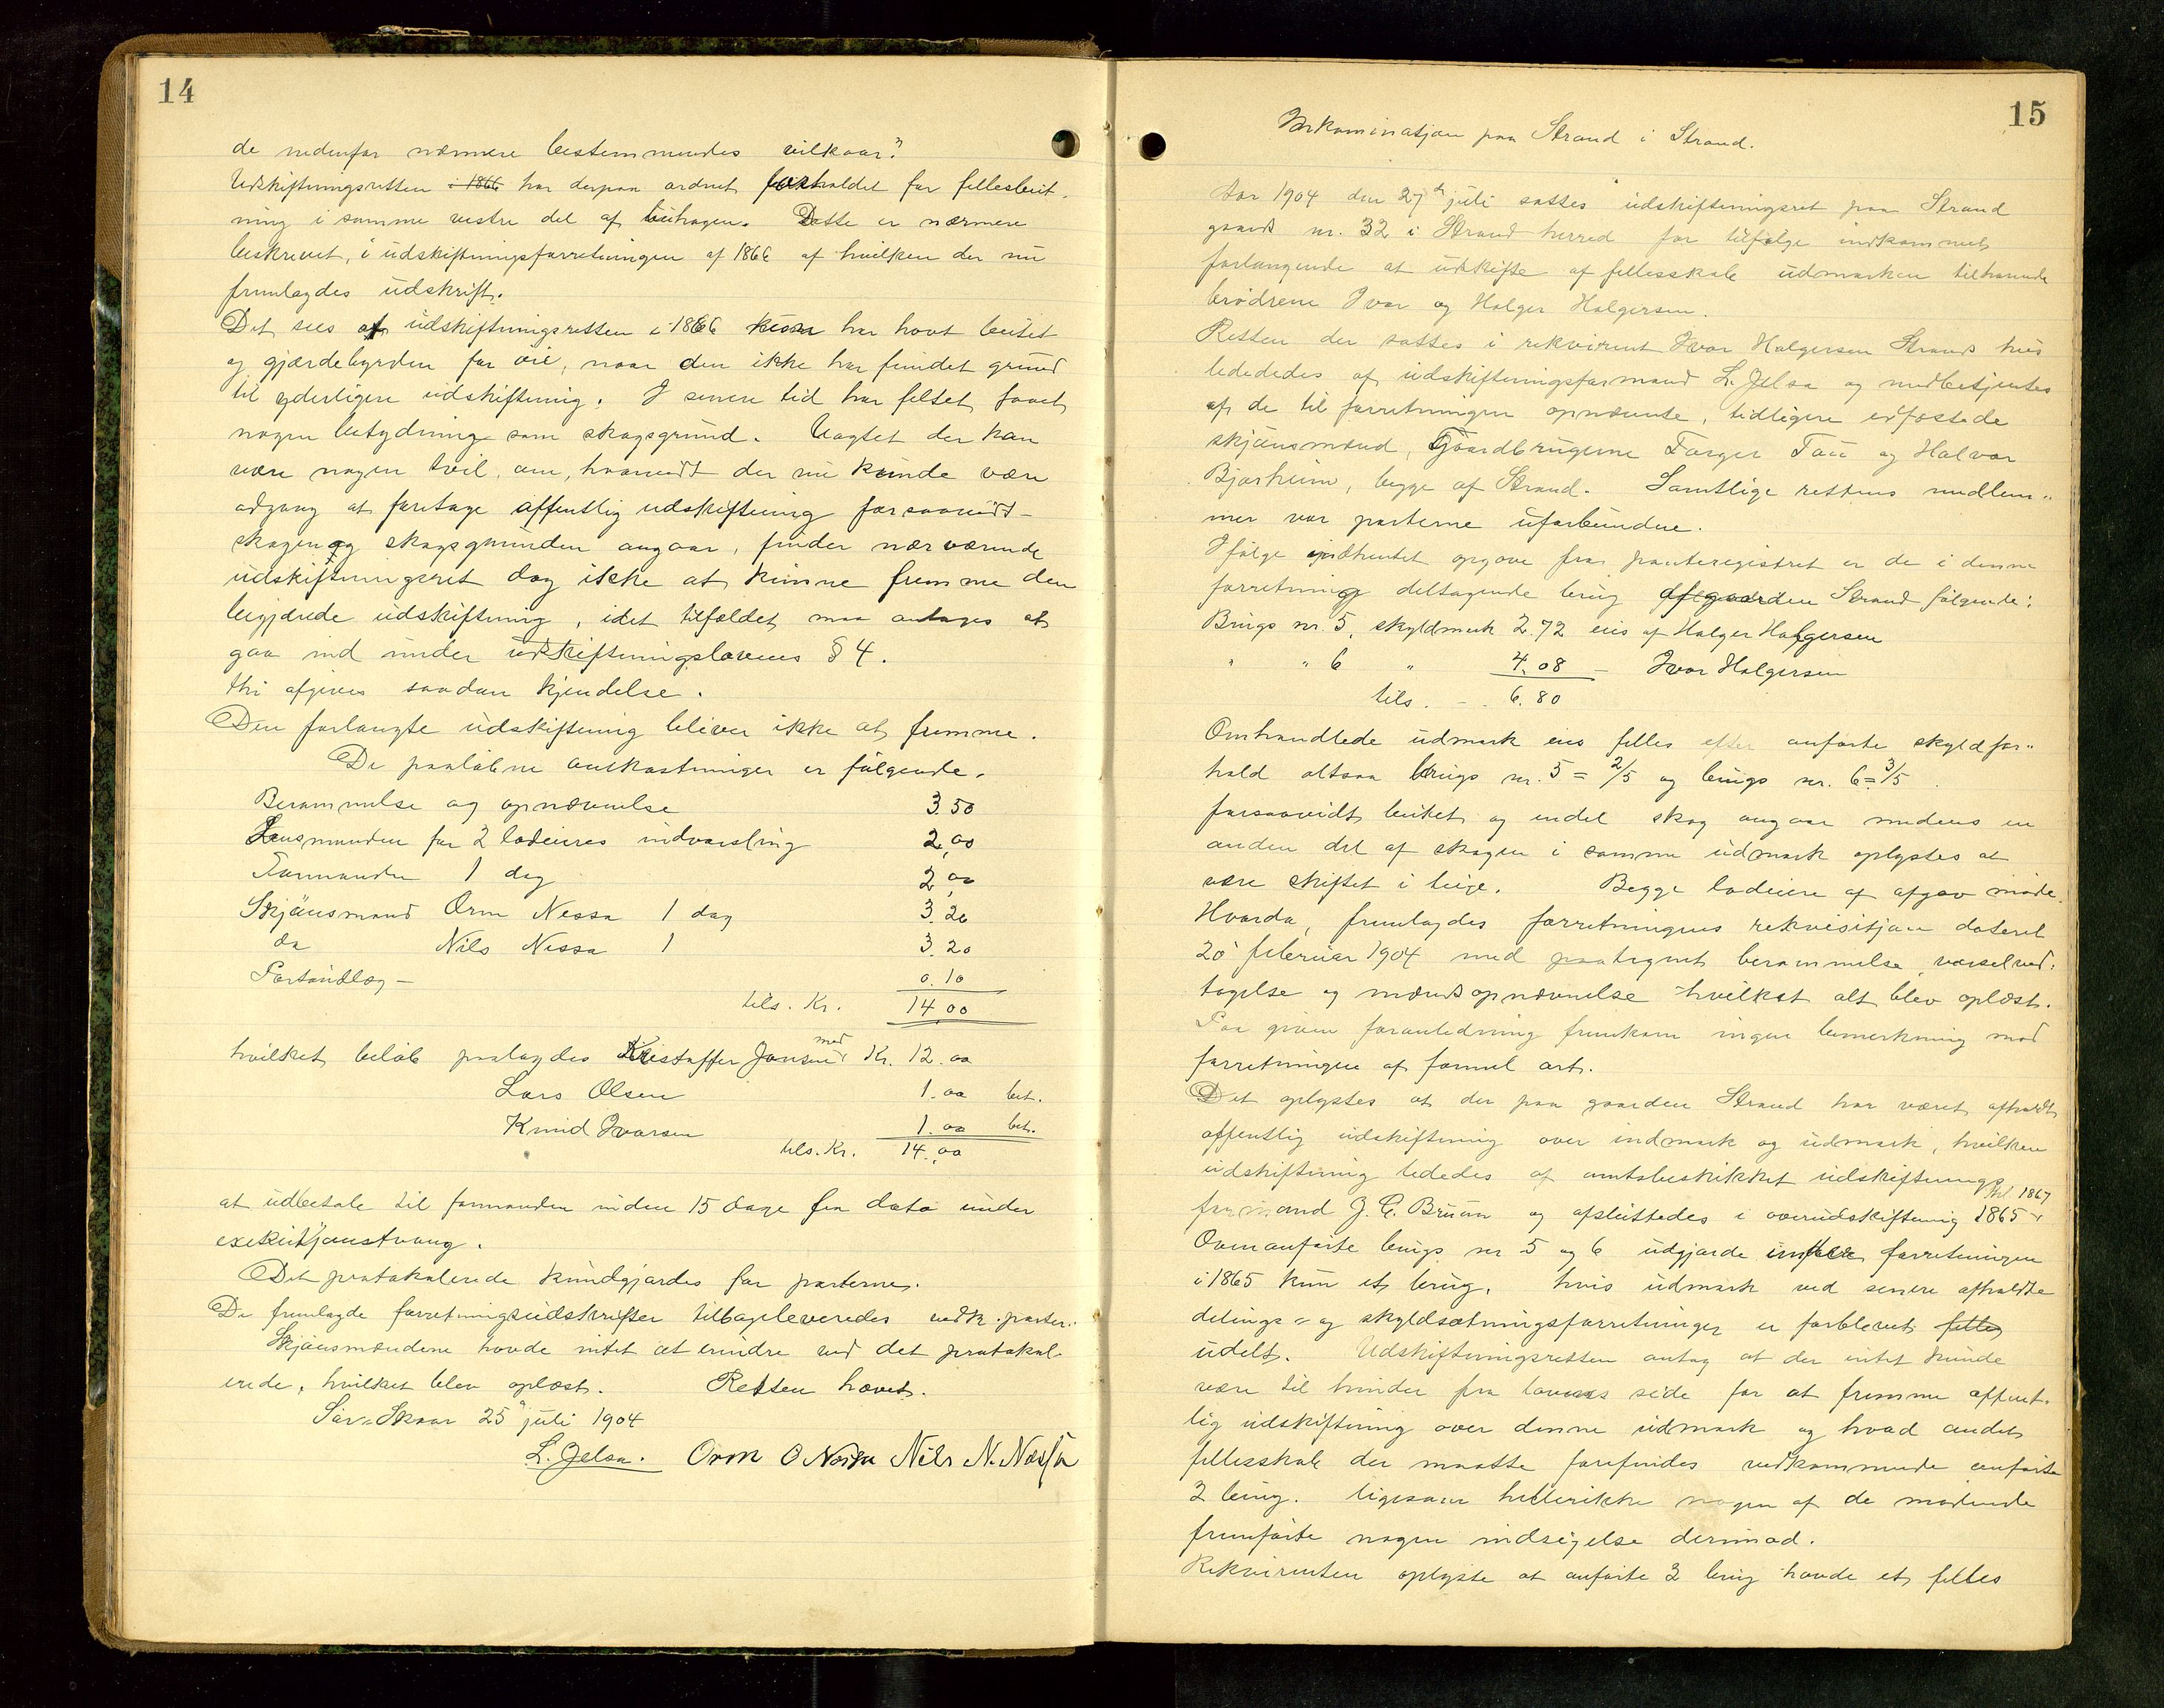 14
de nedenfor nærmere bestemmendes vilkaar."
Udskiftningsretten i 1866 har derpaa ordnet forholdet for fellesbeit-
ning i samme vestre del af buhagen. Dette er nærmere
beskrevet, i udskiftningsforretningen af 1866 af hvilken der nu
fremlagdes udskrift.
Det sees at udskiftningsretten i 1866 kun har havt beitet
og gjærdebyrden for øie, naar den ikke har fundet grund
til yderligere udskiftning. I senere tid har feltet faaet
nogen betydning som skogsgrund. Uagtet der kan
være nogen tvil om, hvorvidt der nu kunde være
adgang at foretage offentlig udskiftning forsaavidt
skogen og skogsgrunden angaar, finder nærværende
udskiftningsret dog ikke at kunne fremme den
begjærede udskiftning, idet tilfældet maa antages at
gaa ind under udskiftningslovens § 4.
thi afgives saadan kjendelse.
Den forlangte udskiftning bliver ikke at fremme.
De paaløbne omkostninger er følgende.
Berammelse og opnævnelse 3.50
Lensmanden for 2 lodeieres indvarsling 2,00
Formanden 1 dag 2,00
Skjønsmand Orm Nessa 1 dag 3.20
do Nils Nessa 1 3.20
Portoudlæg - 0.10
tils. Kr. 14.00
hvilket beløb paalagdes Kristoffer Jonsen med Kr. 12.00
Lars Olsen 1.00 bet.
Knud Ivarsen 1.00 bet.
tils. Kr. 14.00
at udbetale til formanden inden 15 dage fra dato under
exekutjonstvang.
Det protokolerede kundgjordes for parterne.
De fremlagde forretningsudskrifter tilbageleveredes vedk. parter.
Skjønsmændene havde intet at erindre ved det protokol-
erede, hvilket blev oplæst. Retten hævet.
Sør-Skaar 25 juli 1904
L. Jelsa. Orm O Nessa Nils N. Nessa
15
Rekvisitjon paa Strand i Strand.
Aar 1904 den 27de juli sattes udskiftningsret paa Strand
gaards nr. 32 i Strand herred for tilfølge indkommet
forlangende at udskifte af fellesskab udmarken tilhørende
brødrene Ivar og Holger Holgersen.
Retten der sattes i rekvirent Ivar Holgersen Strands hus
lededes af udskiftningsformand L. Jelsa og medbetjentes
af de til forretningen opnævnte, tidligere edfæstede
skjønsmænd, Gaardbrugerne Torger Tau og Halvor
Bjørheim, begge af Strand. Samtlige rettens medlem-
mer var parterne uforbundne.
Ifølge indhentet opgave fra panteregistret er de i denne
forretning deltagende brug af gaarden Strand følgende:
Brugs nr. 5, skyldmark 2.72 eies af Holger Holgersen
" " 6 " 4.08 - Ivar Holgersen
tils. - . 6.80
Omhandlede udmark eies felles efter anførte skyldfor-
hold altsaa brugs nr. 5 = 2/5 og brugs nr. 6 = 3/5
forsaavidt beitet og endel skog angaar medens en
anden del af skogen i samme udmark oplystes at
være skiftet i teige. Begge lodeiere af afgav møde.
Hvorda, fremlagdes forretningens rekvisitjon dateret
20 februar 1904 med paategnet berammelse, varselved-
tagelse og mændsopnævnelse hvilket alt blev oplæst.
Paa given foranledning fremkom ingen bemerkning mod
forretningen af formel art.
Det oplystes at der paa gaarden Strand har været afholdt
offentlig udskiftning over indmark og udmark, hvilken
udskiftning lededes af amtsbeskikket udskiftnings-
formand J. C. Bruun og afsluttedes i overudskiftning 1865 thl. 1867
Ovenanførte brugs nr 5 og 6 udgjorde under forretningen
i 1865 kun et brug, hvis udmark ved senere afholdte
delings- og skyldsætningsforretninger er forblevet felles
udelt. Udskiftningsretten antog at der intet kunde
være til hinder fra lovens side for at fremme offent-
lig udskiftning over denne udmark og hvad andet
fellesskab der maatte forefindes vedkommende anførte
2 brug. ligesom hellerikke nogen af de mødende
fremførte nogen indsigelse derimod.
Rekvirenten oplyste at anførte 2 brug havde et felles